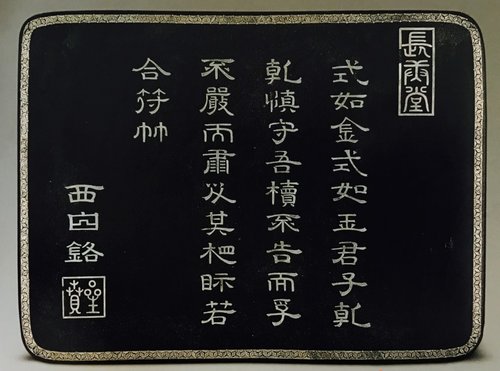 長堂
式如金式如玉君子乾
乾慎守吾櫝不告而孚
不嚴而肅以其杷眎若
合符竹
西銘